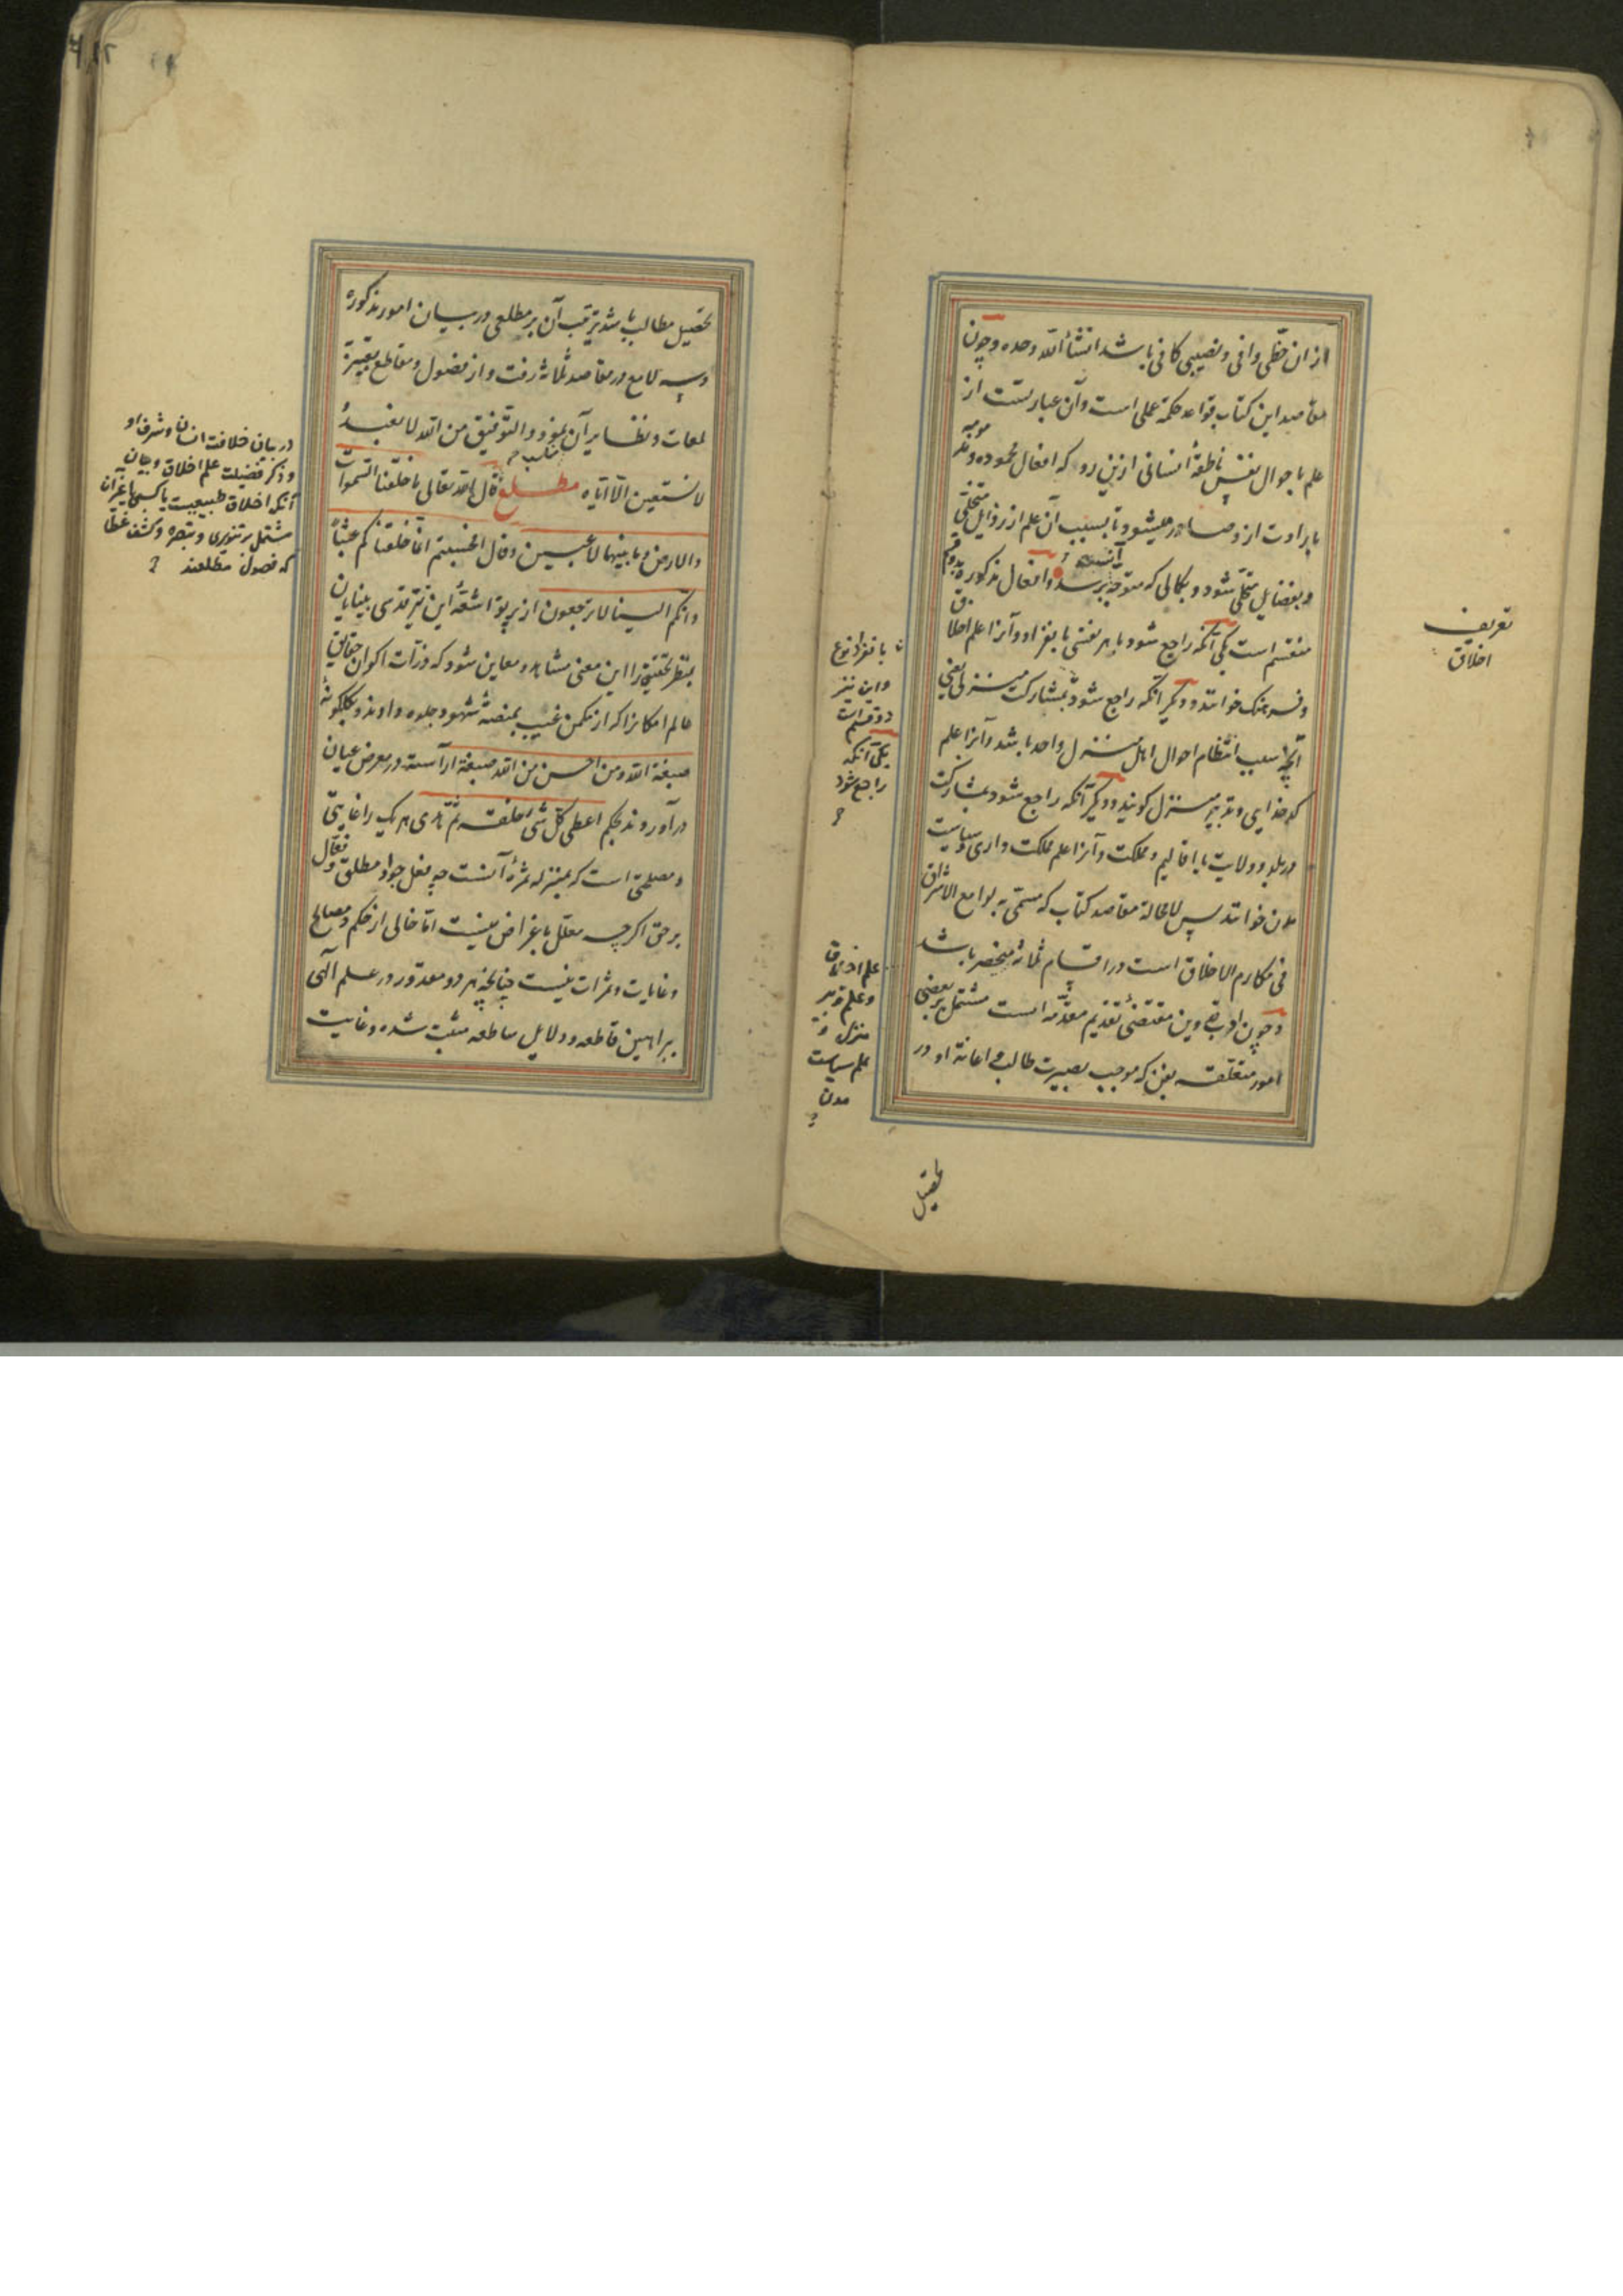 از ان حظی وافی و نصیبی کافی باشد انشأ الله وحده و چون
مقاصد این کتاب قواعد حکمة عملی است و آن عبارتست از
علم باحوال نفس ناطقهٔ انسانی ازین رو که افعال محموده و مذمومه
بارادت ازو صادر میشود تا بسبب آن علم از رذایل متخلّی
و بفضایل متحلّی شود و بکمالی که متوجه آنست برسد و افعال مذکوره بدو قسم
منقسم است یکی آنکه راجع شود با هر نفسی بانفراد و آنرا علم اخلاق
و فرهنک خوانند و دیگر آنکه راجع شود بمشارکت منزلی یعنی
آنچه سبب انتظام احوال اهل منزل واحد باشد و آنرا علم
کدخدایی و تدبیر منزل کویند و دیگر آنکه راجع شود بمشارکت
در بلد و ولایت یا اقالیم و مملکت و آنرا علم مملکت داری و سیاست
مدن خوانند پس لامحالة مقاصد کتاب که مسمّی به لوامع الاشراق
فی مکارم الاخلاق است در اقسام ثلاثهٔ منحصر باشد
و چون ادب تدوین مقتضئ تقدیم مقدّمه است مشتمل بر بعضی
امور متعلقه بفن که موجب بصیرت طالب و اعانة او در
تحصیل
تعریف
اخلاق
بانفراد نوع
و این نیز
دو قسم است
یکی آنکه
راجع شود
علم اخلاق
و علم تدبیر
منزل و
علم سیاست
مدن
تحصیل مطالب باشد ترتیب آن بر مطلعی در بیان امور مذکوره
و سه لامع در مقاصد ثلاثهٔ رفت و از فصول و مقاطع بتعبیر
لمعات و نظایر آن نمود و التوفیق من الله لا نعبد
و لا نستعین الّا ایّاه مطلع قال الله تعالی ما خلقنا السّموات
والارض و ما بینهما لاعبین و قال افحسبتم انّما خلقناکم عبثاً
و انّکم الینا لا ترجعون از پرتو اشعّهٔ این نیّر قدسی بینایان
بنظر تحقیق را این معنی مشاهد و معاین شود که ذرّات اکوان حقایق
عالم امکانرا که از مکمن غیب بمنصّهٔ شهود جلوه دادند و بکلکونهٔ
صبغة الله و من احسن من الله صبغة آراسته در معرض عیان
درآوردند بحکم اعطی کلّ شیٔ خلقه ثمّ هدی هر یک را غایتی
و مصلحتی است که بمنزله ثمرهٔ آنست چه فعل جواد مطلق و فعّال
برحق اکرچه معلّل باغراض نیست امّا خالی از حکم و مصالح
و غایات و ثمرات نیست چنانچه هر دو مقدّمه در علم الهی
ببراهین قاطعه و دلایل ساطعه مثبت شده و غایت
در بیان خلافت انسان و شرف او
و ذکر فضیلت علم اخلاق و بیان
آنکه اخلاق طبیعیست یا کسبی یا غیر آن
مشتمل بر تنویری و تبصره و کشف غطا
که فصول مطلعند